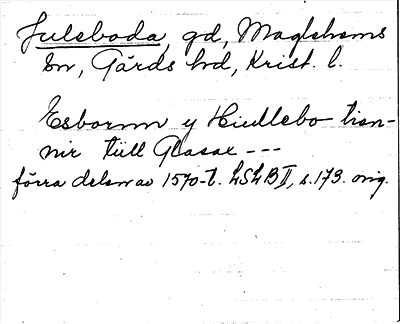 Juleboda, gd, Maglehems
sn, Gärds hd, Krist. l.
Esbornn y Hiullebo tien-
nir tiill Glasax ---
förra delen av 1570-t. LSLB II, s. 173. orig.